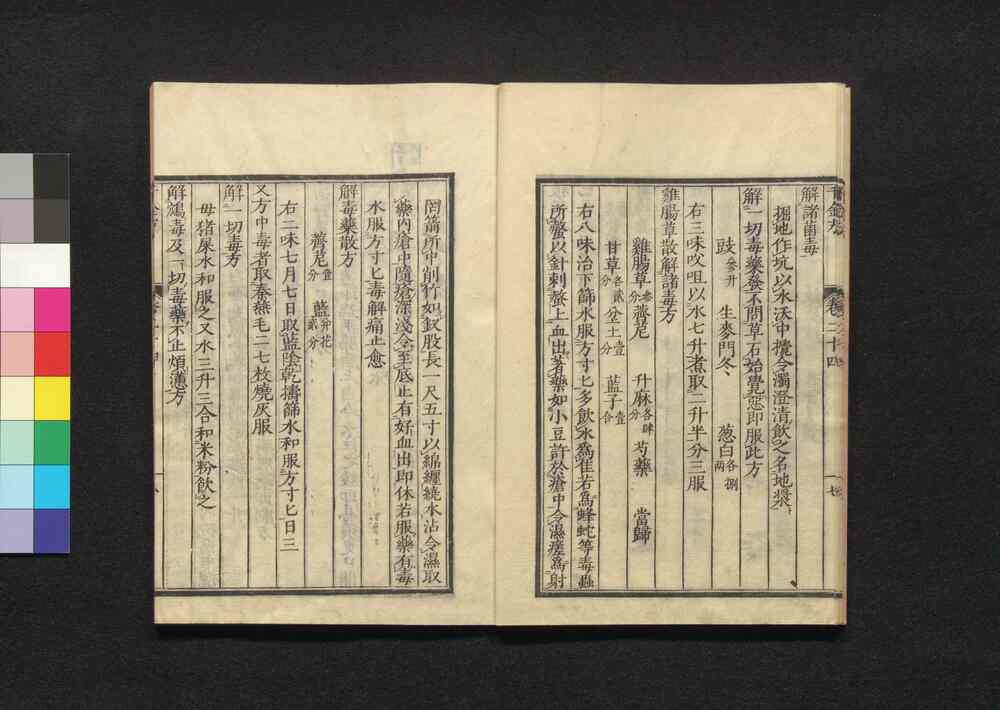 卷二十四
解諸菌毒
掘地作坑以水沃中攪令濁澄清飲之名地漿
解一切毒藥發不問草石始覺惡即服此方
豉參升 生麥門冬 葱白各捌兩
右三味㕮咀以水七升煮取二升半分三服
雞腸草散解諸毒方
雞腸草參分 薺苨 升麻各肆分 芍藥 當歸
甘草各貳分 坌土壹分 藍子壹合
右八味治下篩水服方寸匕多飲水爲佳若爲蜂蛇等毒蟲
所螫以針刺螫上血出著藥如小豆許於瘡中令濕瘥爲射
罔箭所中削竹如釵股長一尺五寸以綿纏繞水沾令濕取
藥內瘡中隨瘡深淺令至底止有好血出即休若服藥有毒
水服方寸匕毒解痛止愈
解毒藥散方
薺苨壹分 藍并花貳分
右二味七月七日取藍陰乾擣篩水和服方寸匕日三
又方中毒者取秦燕毛二七枚燒灰服
解一切毒方
毋猪屎水和服之又水三升三合和米粉飲之
解鴆毒及一切毒藥不止煩懣方